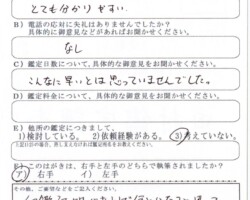 とても分かりやすい.
B）電話の応対に失礼はありませんでしたか？
具体的に御意見などがあればお聞かせください。
なし
C）鑑定日数について、具体的な御意見をお聞かせください。
こんなに早いとは思っていませんでした。
D）鑑定料金について、具体的な御意見をお聞かせください。
E）他所の鑑定につきまして。
1)検討している。 2)依頼経験がある。 3)考えていない。
F）このはがきは、右手と左手のどちらで執筆されましたか？
ア） 右手 イ） 左手
その他、ご要望などをご記入ください。